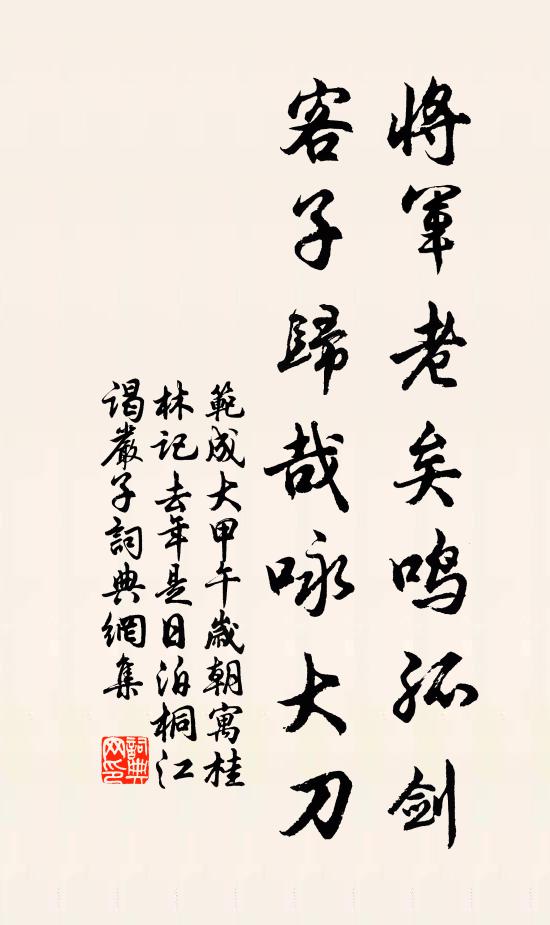 將軍老矣鸣孤剑
客子歸哉咏大刀
範成大甲午歲朝寓桂
林記去年是日泊桐江
謁嚴子詞典網集
詞典网印